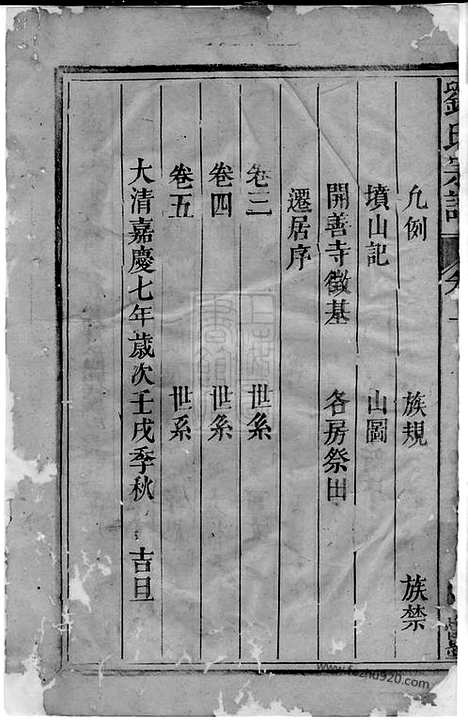 劉氏宗譜 卷一
凡例 族規 族禁
墳山記 山圖
開善寺徵基 各房祭田
遷居序
卷三 世系
卷四 世系
卷五 世系
大清嘉慶七年歲次壬戌季秋 吉旦
www.fozhu920.com